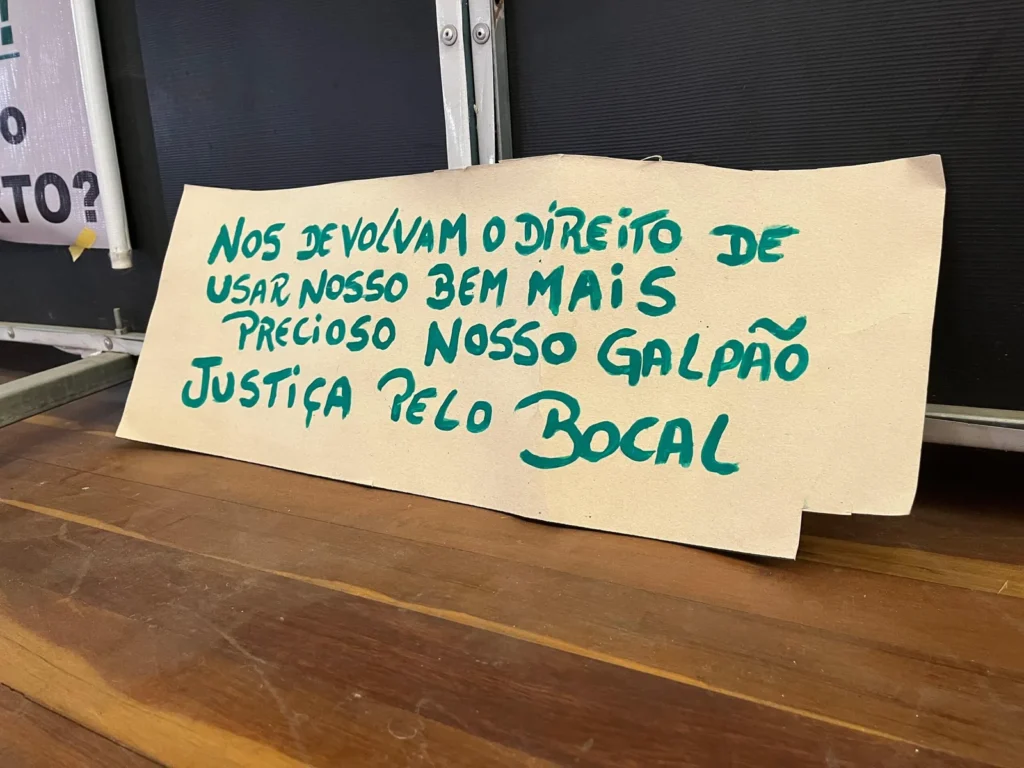 !
O
TO?
NOS DEVOLVAM O DIREITO DE
USAR NOSSO BEM MAIS
PRECIOSO NOSSO GALPÃO
JUSTIÇA PELO BOCAL